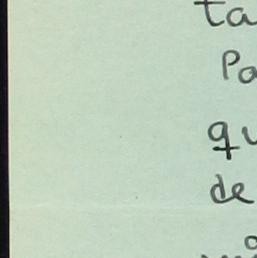 ta
Pa
qu
de